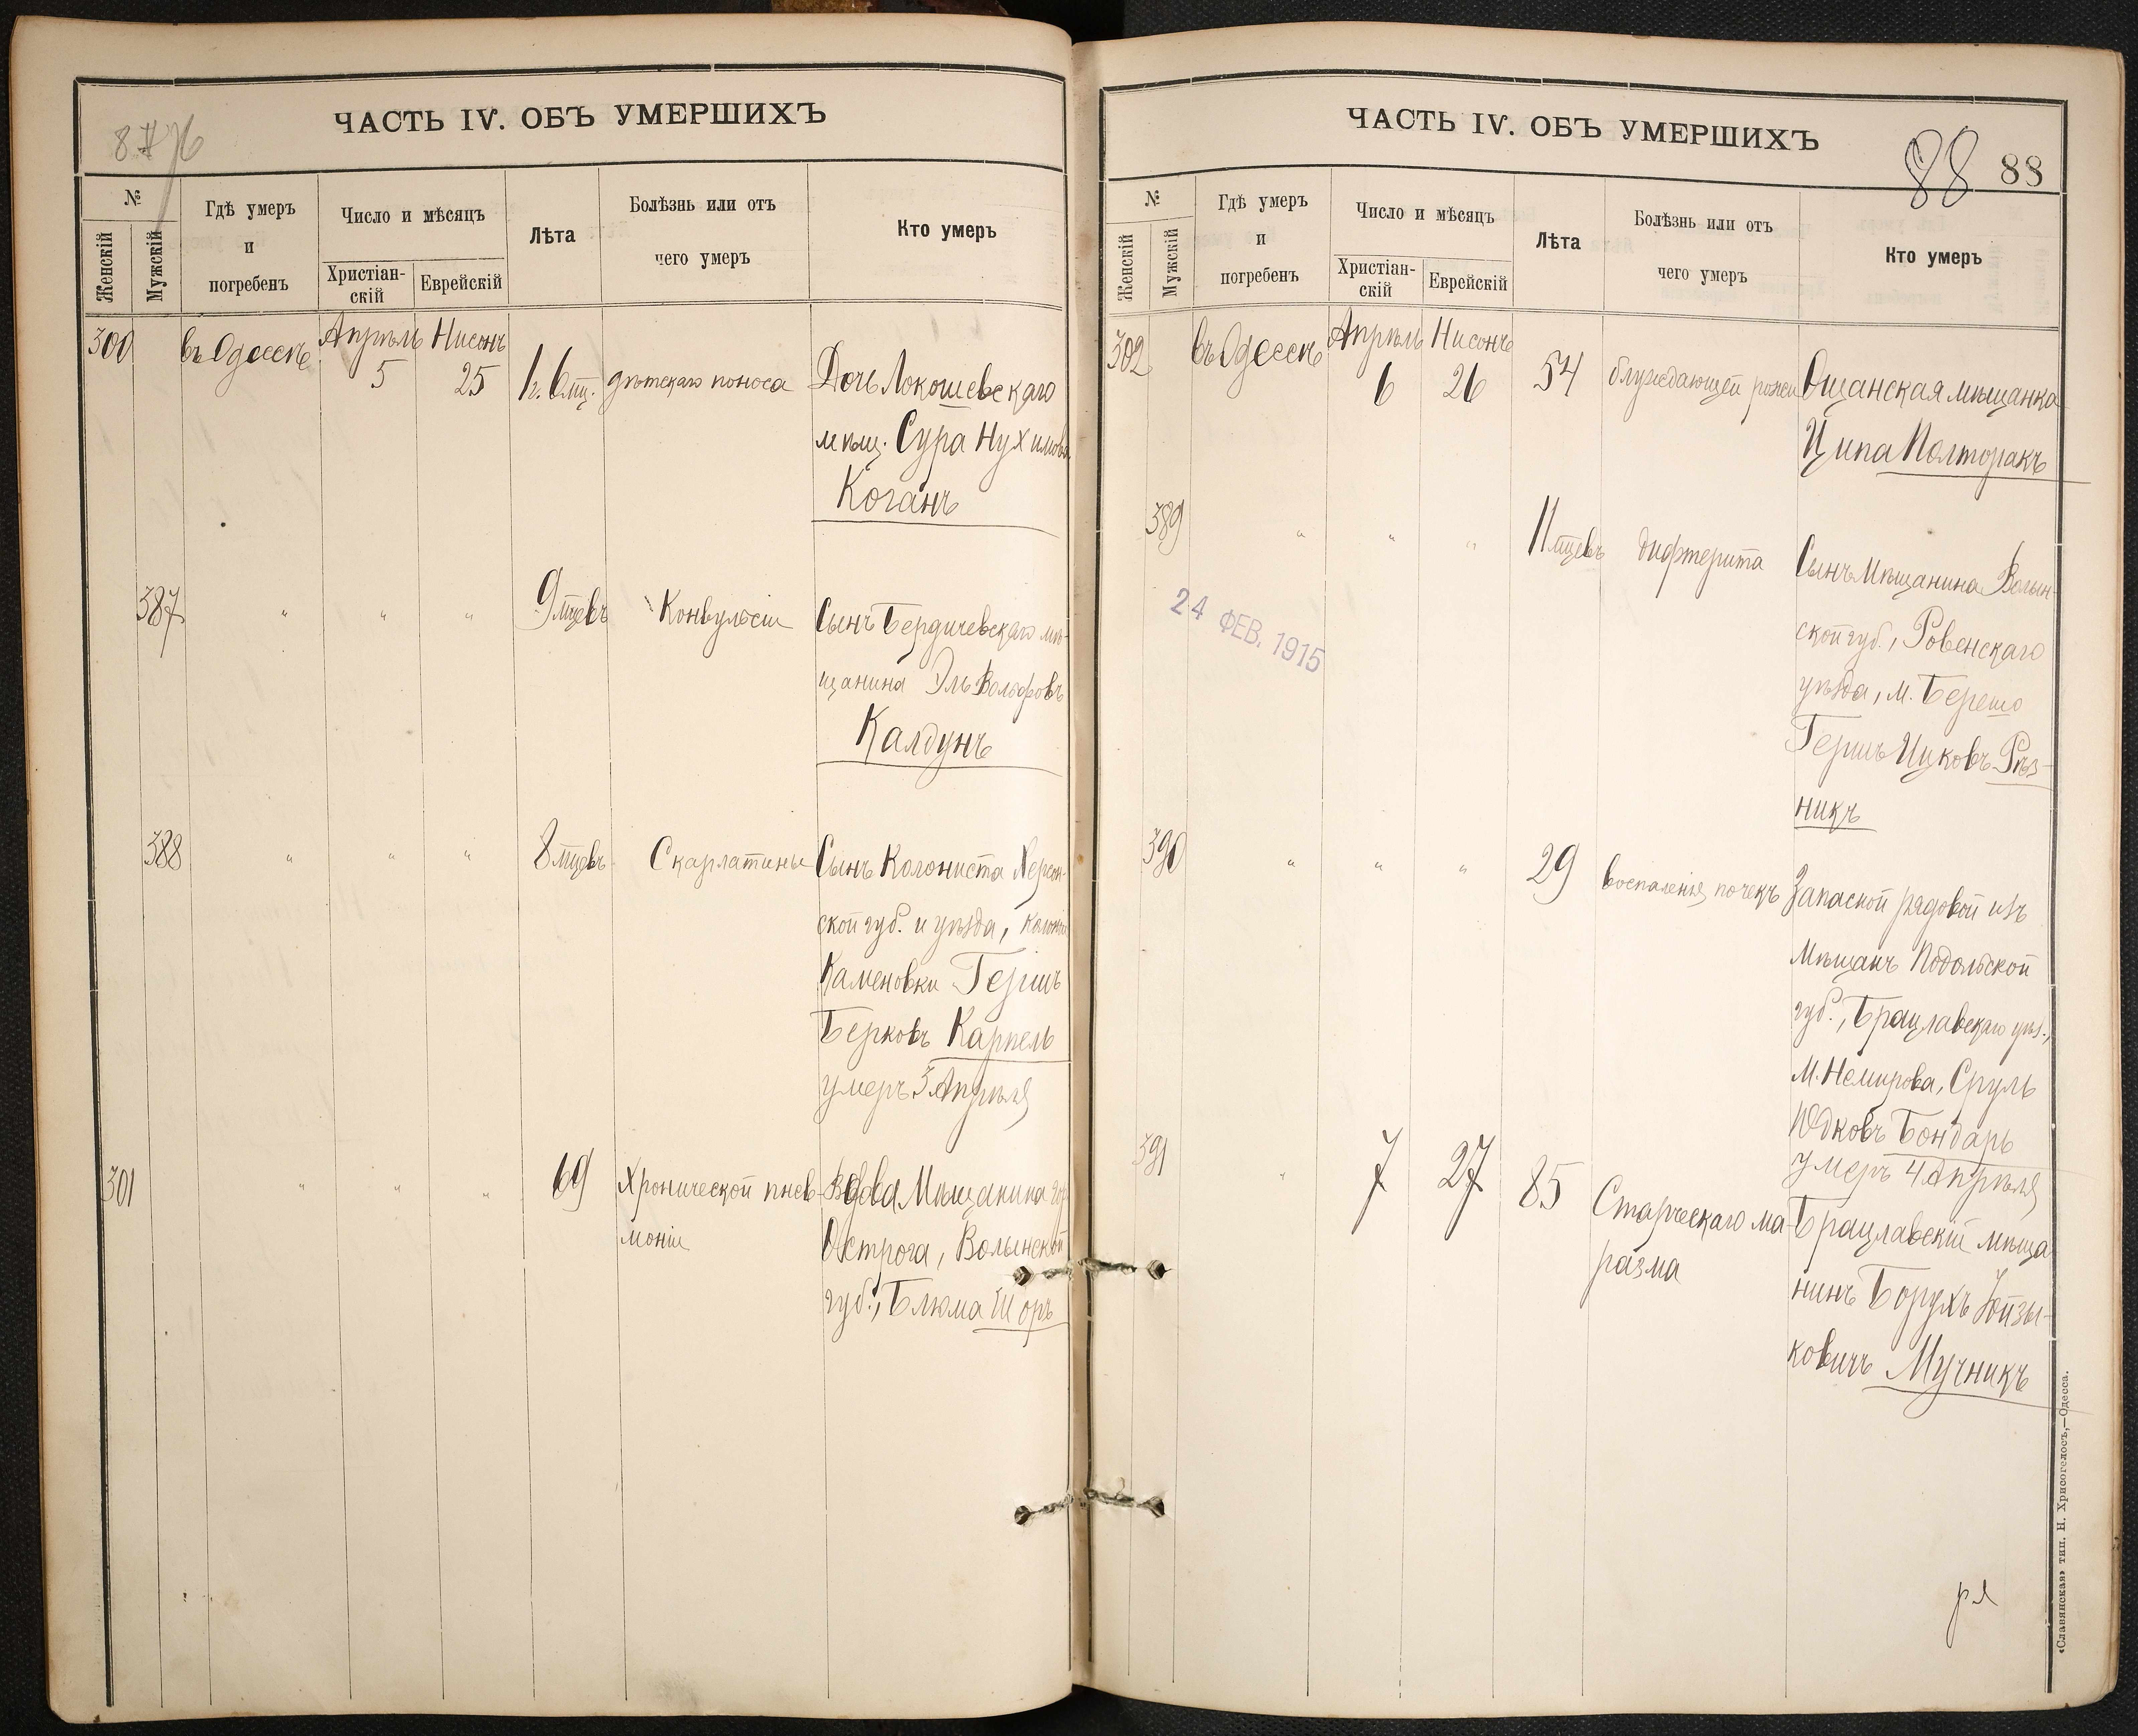 ЧАСТЬ IV. ОБЪ УМЕРШИХЪ
№
Женскій
Мужскій
Гдѣ умеръ
и
погребенъ
Число и мѣсяцъ
Христіан-
скій
Еврейскій
Лѣта
Болѣзнь или отъ
чего умеръ
Кто умеръ
300 въ Одессѣ Апрѣль 5 Нисонъ 25 1 г. 6 мц. дѣтскаго поноса Дочь Локошевскаго
мѣщ. Сура Нухимова
Коганъ
387 " " " 9 мцевъ Конвульсіи Сынъ Бердичевскаго мѣ-
щанина Эль Вольфовъ
Калдунъ
388 " " " 8 мцевъ Скарлатины Сынъ Колониста Херсон-
ской губ. и уѣзда, колоніи
Каменовки Гершъ
Берковъ Карпель
умеръ 3 Апрѣля
301 " " " 69 Хронической пнев- Вдова Мѣщанина гор.
моніи Острога, Волынской
губ., Блюма Шоръ
ЧАСТЬ IV. ОБЪ УМЕРШИХЪ
88 88
№
Женскій
Мужскій
Гдѣ умеръ
и
погребенъ
Число и мѣсяцъ
Христіан-
скій
Еврейскій
Лѣта
Болѣзнь или отъ
чего умеръ
Кто умеръ
302 въ Одессѣ Апрѣль 6 Нисонъ 26 54 блуждающей рожи Ощанская мѣщанка
Ципа Полторакъ
389 " " " 11 мцевъ дифтерита Сынъ Мѣщанина Волын-
ской губ., Ровенскаго
уѣзда, м. Берешо
Гершъ Ицковъ Рѣз-
никъ
24 ФЕВ. 1915
390 " " " 29 воспаленія почекъ Запасной рядовой изъ
Мѣщанъ Подольской
губ., Брацлавскаго уѣз.,
м. Немирова, Сруль
Юдковъ Бондарь
умеръ 4 Апрѣля
391 " 7 27 85 Старческаго ма- Брацлавскій мѣща-
разма нинъ Борухъ
ковичъ Мучникъ
«Славянская» тип. Н. Хрисогелосъ,—Одесса.